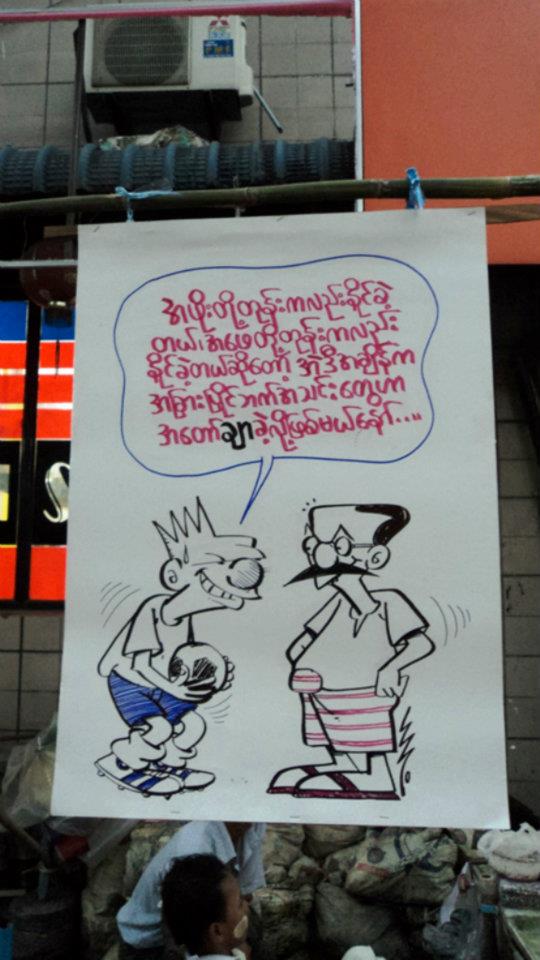 အဖိုးတို့တုန်းကလည်းနိုင်ခဲ့
တယ်၊အဖေတို့တုန်းကလည်း
နိုင်ခဲ့တယ်ဆိုတော့ အဲဒီအချိန်က
အခြားပြိုင်ဘက်အသင်းတွေဟာ
အတော်ချာခဲ့လို့ဖြစ်မယ်နော်....
S